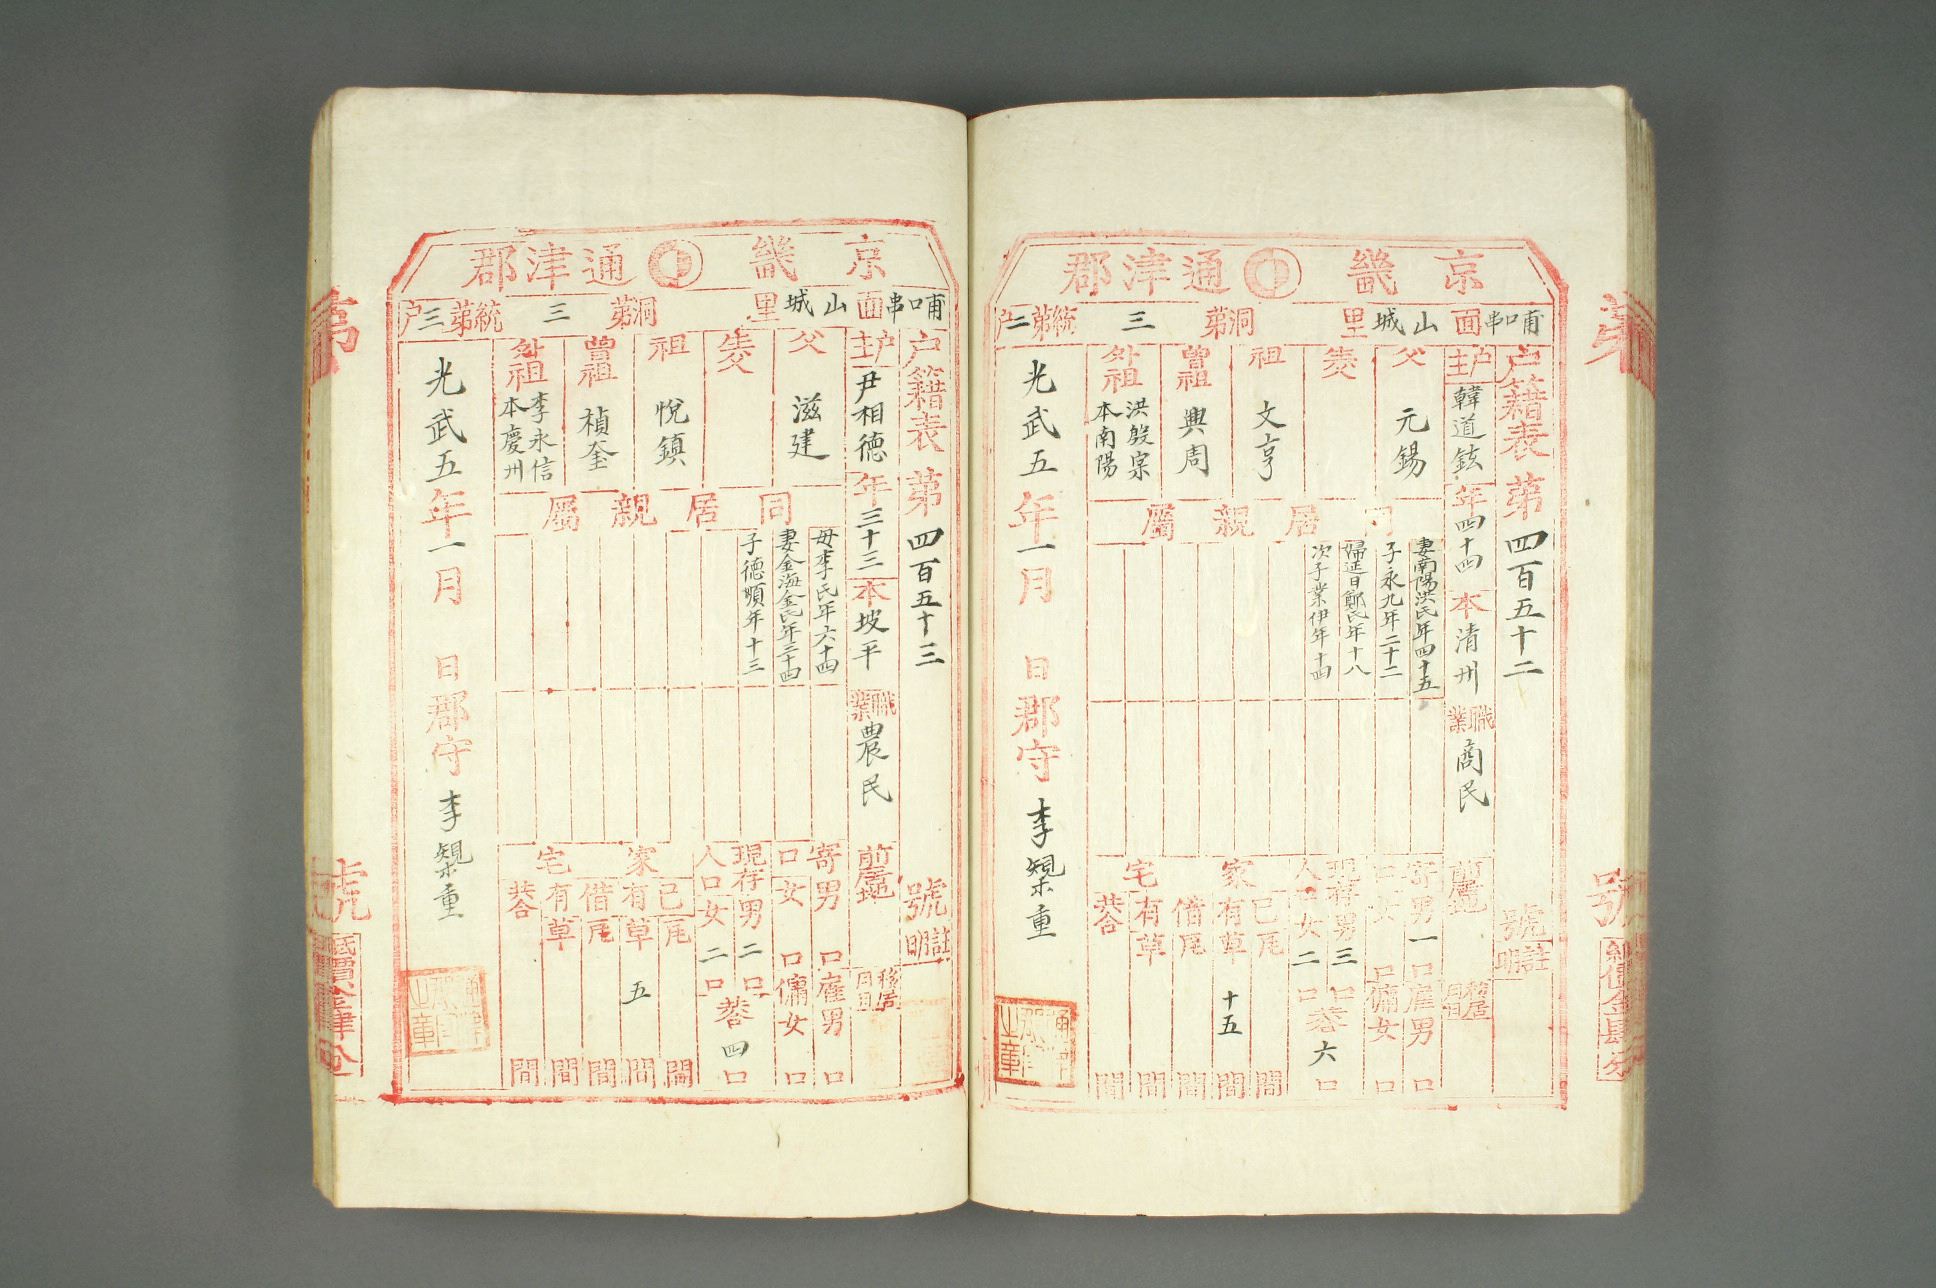 京畿 通津郡
哺口串面 山城里 洞第三統第二戶
戶籍表 第四百五十二號
戶主 韓道鉉 年四十四 本清州 職業 商民 前居地 移居 月日
父 元錫
生父
祖 文亨
曾祖 興周
外祖 洪殷宗 本南陽
同居親屬
妻南陽洪氏年四十五
子永九年二十二
婦延日鄭氏年十八
次子業伊年十四
寄口 男一口 女口
雇男口
傭女口
現存人口 男三口 女二口 共合六口
家宅 己有 瓦間 草十五間
借有 瓦間 草間
共合間
光武五年一月 日 郡守 李 重
京畿 通津郡
哺口串面 山城里 洞第三統第三戶
戶籍表 第四百五十三號
戶主 尹相德 年三十三 本坡平 職業 農民 前居地 移居 月日
父 滋建
生父
祖 悅鎮
曾祖 楨奎
外祖 李永信 本慶州
同居親屬
母李氏年六十四
妻金海金氏年三十四
子德順年十三
寄口 男口 女口
雇男口
傭女口
現存人口 男二口 女二口 共合四口
家宅 己有 瓦間 草五間
借有 瓦間 草間
共合間
光武五年一月 日 郡守 李 重
號